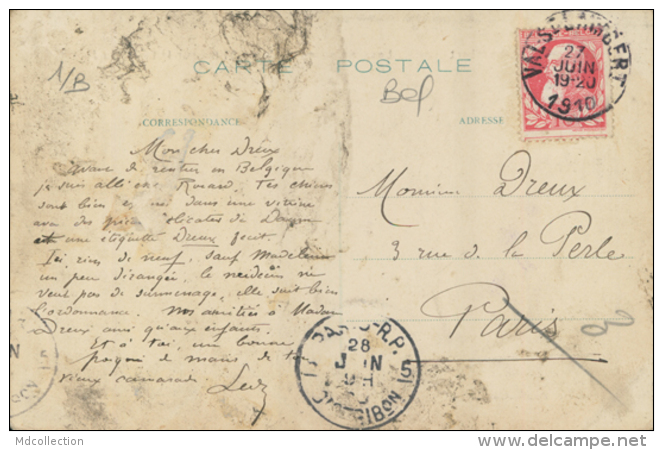 1/B
CARTE POSTALE
Bel
CORRESPONDANCE
ADRESSE
VAL-ST-LAMBERT
27
JUIN
19-20
1910
Mon cher Dreux
Avant de rentrer en Belgique
je suis allé chez Rouard. Tes chiens
sont bien et mis dans une vitrine
avec des pièces délicates de Daum
et une étiquette Dreux fecit.
Ici rien de neuf, sauf Madeleine
un peu dérangée, le médecin ne
veut pas de surmenage, elle suit bien
l'ordonnance. Nos amitiés à Madame
Dreux ainsi qu'aux enfants.
Et à toi, une bonne
poignée de mains de ton
vieux camarade
Monsieur Dreux
3 rue de la Perle
Paris
28
DISTRIBUTION
15
Mdcollection
www.delcampe.net